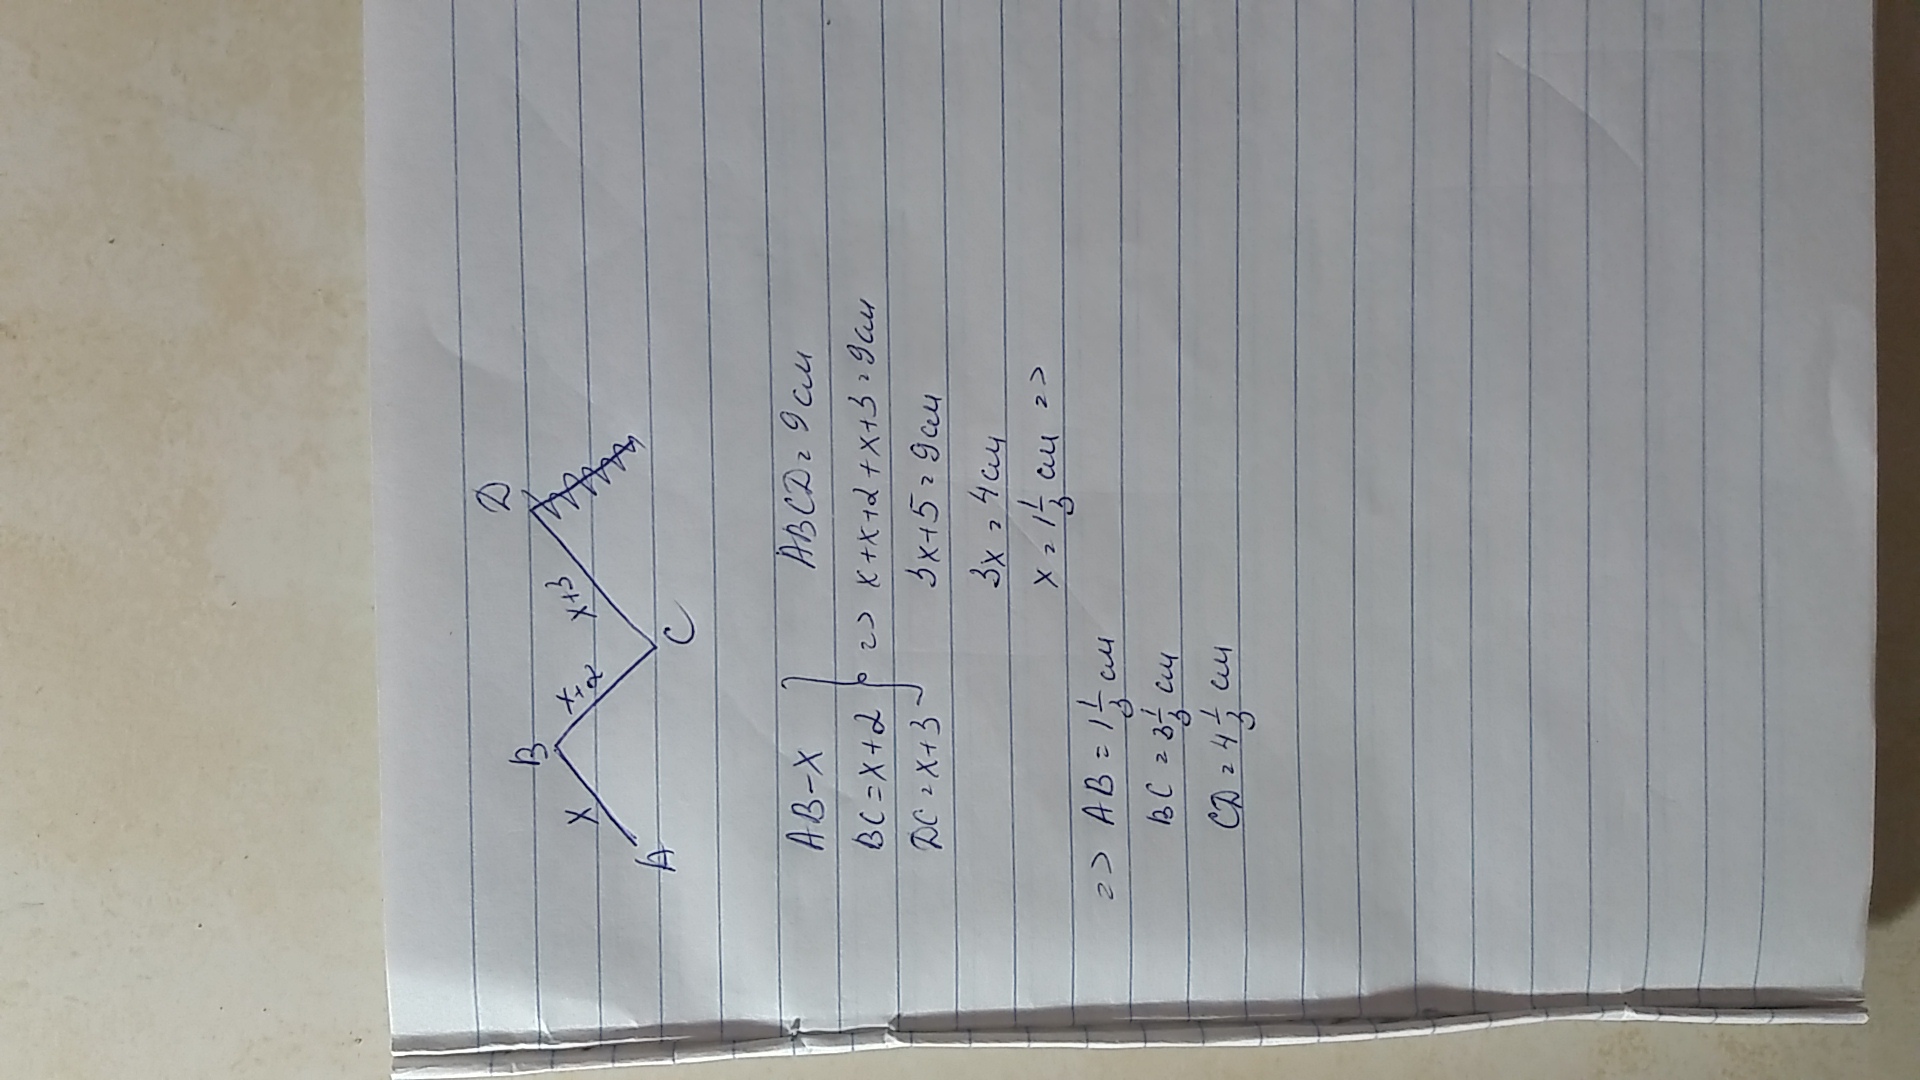 B
D
x
x+2
x+3
A
C
AB-x
ABCD=9см
BC=x+2
=> x+x+2+x+3=9см
DC=x+3
3x+5=9см
3x=4см
x=1 1/3 см =>
=> AB=1 1/3 см
BC=3 1/3 см
CD=4 1/3 см